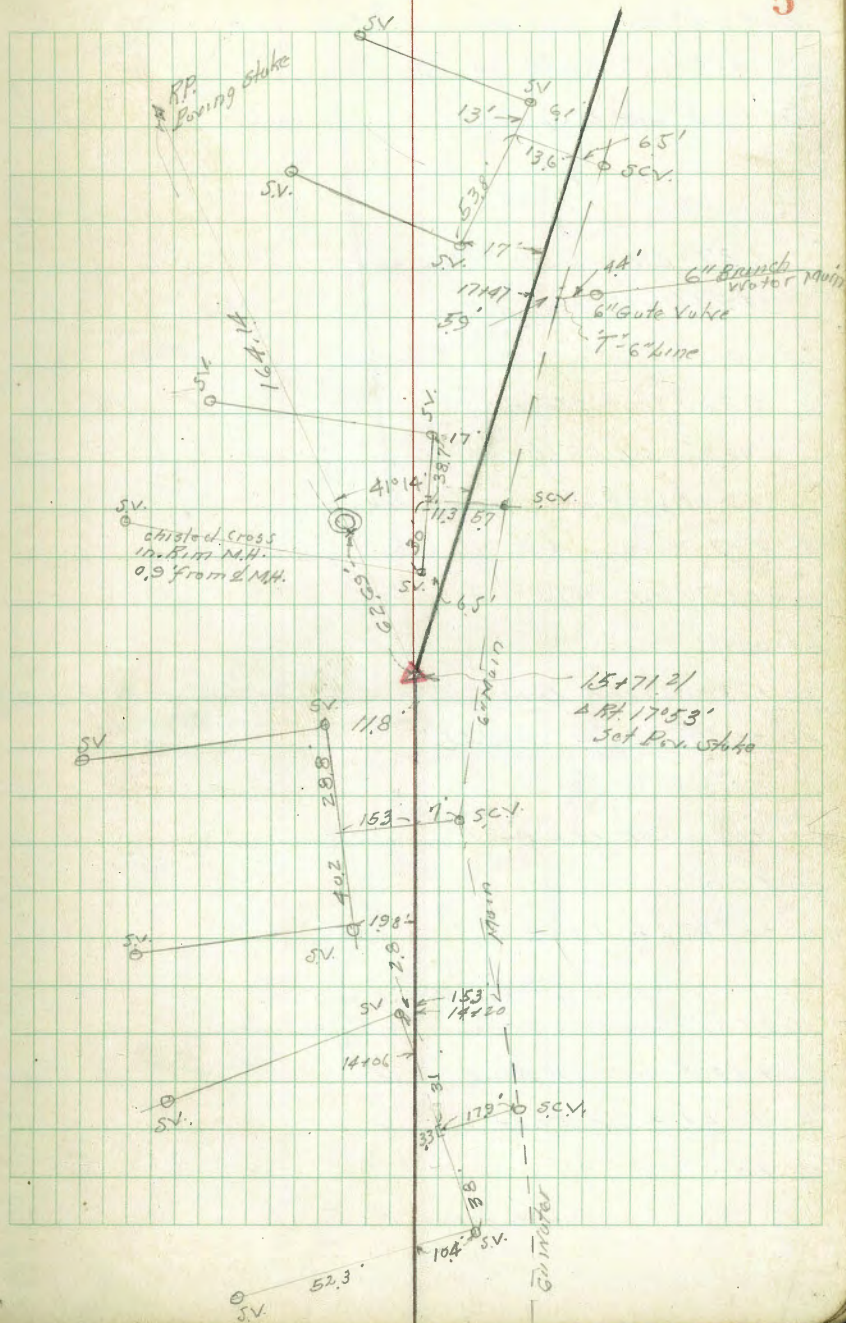 5
S.V.
R.P.
Paving Stake
S.V.
13'
6.1'
6.5'
13.6'
S.C.V.
S.V.
53.8'
S.V.
17'
4.4'
6" Branch
Water Main
17+47
5.9'
6" Gate Valve
"T"-6" Line
164.14
S.V.
S.V.
17'
38.7'
41°14'
11.3
5.7
S.C.V.
S.V.
chisled Cross
in Rim M.H.
0.9' from ¢ M.H.
30
S.V.
62.69'
6.5'
6" Main
15+71.21
Δ Rt. 17°53'
Set Pav. Stake
S.V.
11.8'
S.V.
28.8'
15.3
7'
S.C.V.
40.2
Main
19.8'
S.V.
S.V.
2.8
15.3'
14+20
S.V.
14+06
S.V.
31
17.9'
S.C.V.
33
38'
6" Water
10.4'
S.V.
52.3'
S.V.